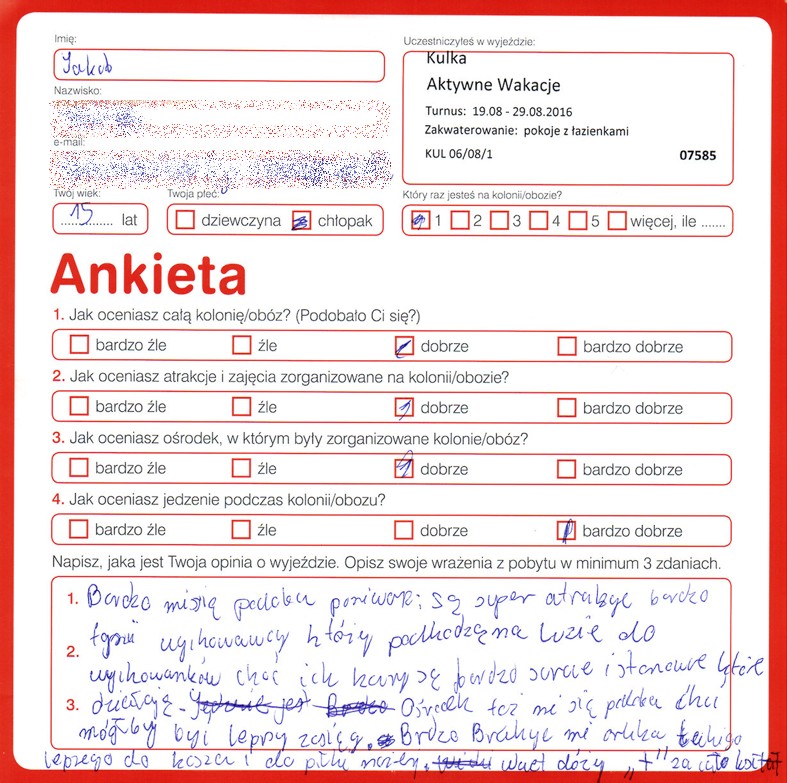 Imię:
Jakub
Uczestniczyłeś w wyjeździe:
Kulka
Aktywne Wakacje
Turnus: 19.08 - 29.08.2016
Zakwaterowanie: pokoje z łazienkami
KUL 06/08/1 07585
Nazwisko:
e-mail:
Twój wiek:
15 lat
Twoja płeć:
dziewczyna chłopak
Który raz jesteś na kolonii/obozie?
1 2 3 4 5 więcej, ile .......
Ankieta
1. Jak oceniasz całą kolonię/obóz? (Podobało Ci się?)
bardzo źle źle dobrze bardzo dobrze
2. Jak oceniasz atrakcje i zajęcia zorganizowane na kolonii/obozie?
bardzo źle źle dobrze bardzo dobrze
3. Jak oceniasz ośrodek, w którym były zorganizowane kolonie/obóz?
bardzo źle źle dobrze bardzo dobrze
4. Jak oceniasz jedzenie podczas kolonii/obozu?
bardzo źle źle dobrze bardzo dobrze
Napisz, jaka jest Twoja opinia o wyjeździe. Opisz swoje wrażenia z pobytu w minimum 3 zdaniach.
1. Bardzo mi się podoba poniważ są super atrakcje bardzo
2. fajni wyhowawcy któży podhodzą na luzie do
wyhowanków choć ich kary są bardzo surowe i stanowcze
3. działają. Ośrodek też mi się podoba
mógłby być lepszy zasięg. Brdzo Brakuje mi orlika takiego
lepszego do kosza i do piłki nożnej. duży „+" za